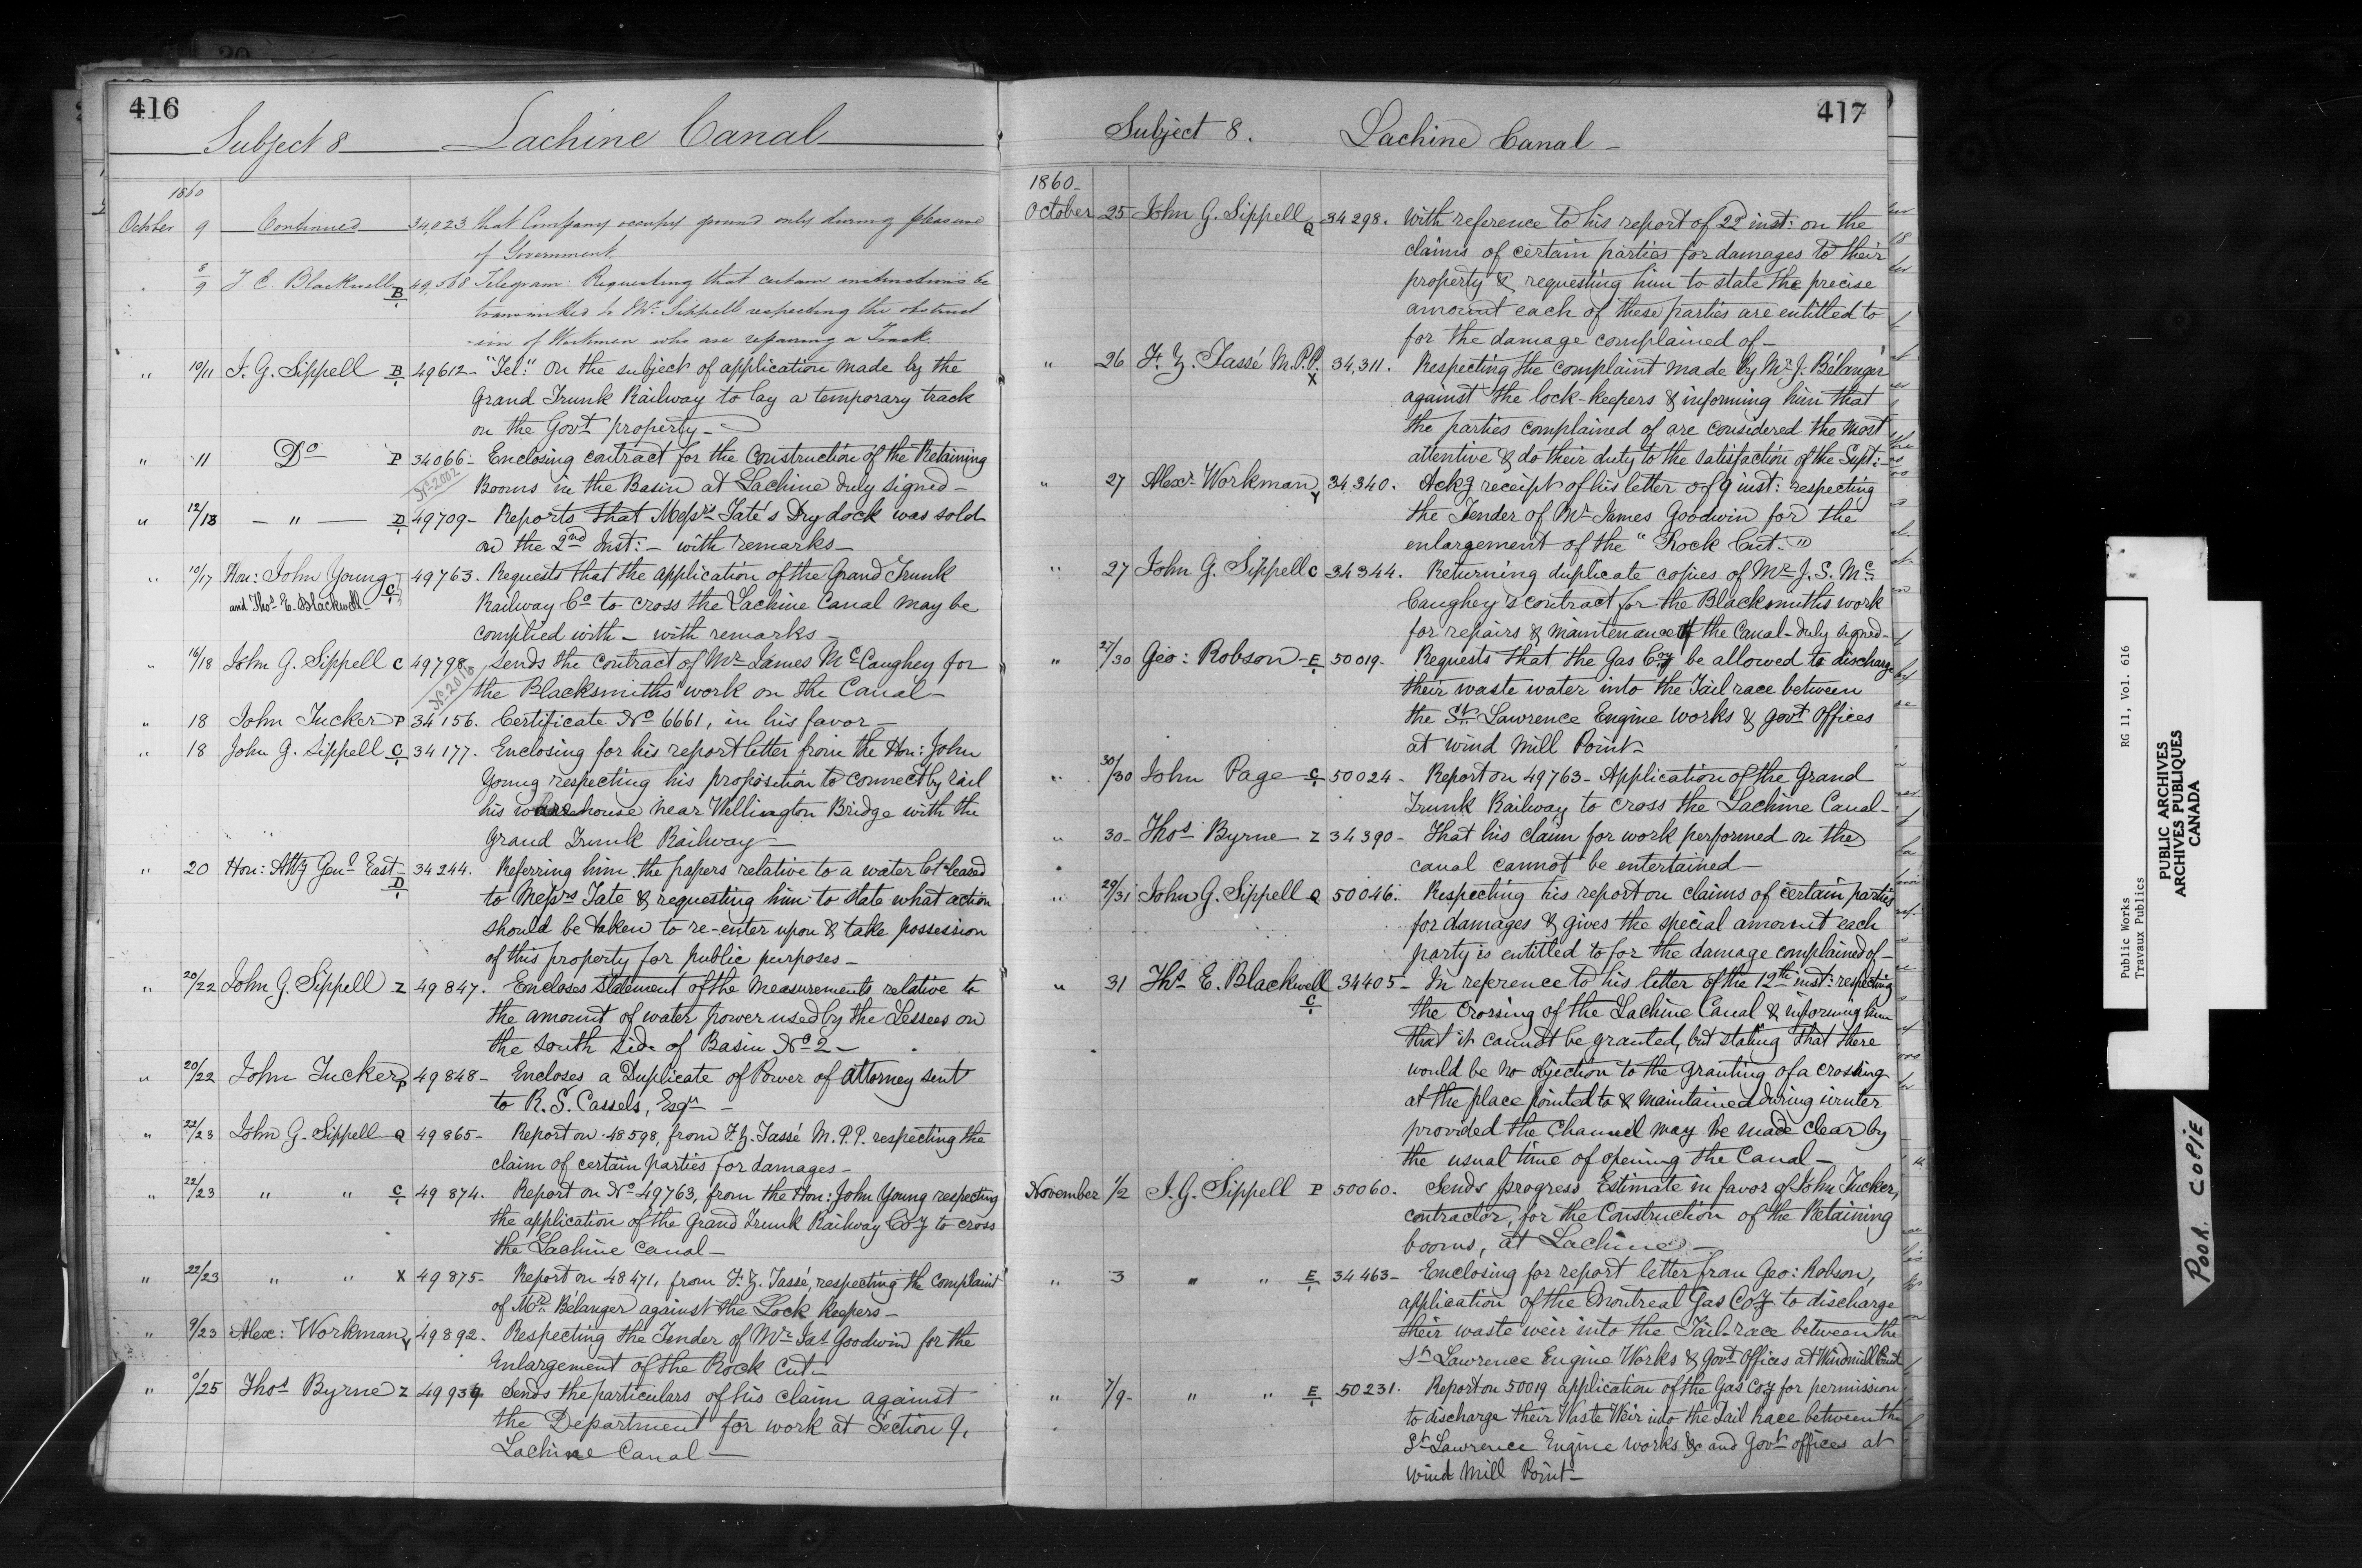 416
Subject 8 Lachine Canal
1860
October 9 Continued 34,023 that Company occupy ground only during pleasure
of Government
8/9 T E. Blackwell B 49,568 Telegram: Requesting that certain instructions be
transmitted to Mr. Sippell respecting the obstruct
-ion of Workmen who are repairing a Track.
" 10/11 J. G. Sippell B 49612 - "Tel:" On the subject of application made by the
Grand Trunk Railway to lay a temporary track
on the Govt property -
" 11 Do P 34066 - Enclosing contract for the Construction of the Retaining
No 2002 Booms in the Basin at Lachine duly signed -
" 12/13 - " - D 49709 - Reports that Messrs Tate's Dry dock was sold
on the 2nd Inst: - with remarks -
" 10/17 Hon: John Young C 49763. Requests that the application of the Grand Trunk
and Thos E. Blackwell Railway Co to cross the Lachine Canal may be
complied with - with remarks -
" 16/18 John G. Sippell C 49798 Sends the contract of Mr James McCaughey for
No 2018 the Blacksmiths work on the Canal -
" 18 John Tucker P 34156. Certificate No 6661, in his favor -
" 18 John G. Sippell C 34177. Enclosing for his report letter from the Hon: John
Young respecting his proposition to connect by rail
his warehouse near Wellington Bridge with the
Grand Trunk Railway -
" 20 Hon: Atty Genl East - D 34244. Referring him the papers relative to a water lot leased
to Messrs Tate & requesting him to state what action
should be taken to re-enter upon & take possession
of this property for public purposes -
" 20/22 John G. Sippell Z 49847. Encloses statement of the measurements relative to
the amount of water power used by the Lessees on
the South side of Basin No 2 -
" 20/22 John Tucker P 49848 - Encloses a Duplicate of Power of Attorney sent
to R. S. Cassels, Esqr -
" 22/23 John G. Sippell Q 49865 - Report on 48598, from F. Z. Tassé M.P.P. respecting the
claim of certain parties for damages -
" 22/23 " " C 49874. Report on No 49763, from the Hon: John Young respecting
the application of the Grand Trunk Railway Coy to cross
the Lachine Canal -
" 22/23 " " X 49875 - Report on 48471, from F. Z. Tassé, respecting the complaint
of Mr. Bélanger against the Lock Keepers -
" 9/23 Alex: Workman Y 49892. Respecting the Tender of Mr Jas Goodwin for the
Enlargement of the Rock Cut -
" 0/25 Thos Byrne Z 49939. Sends the particulars of his claim against
the Department for work at Section 9,
Lachine Canal -
417
Subject 8. Lachine Canal -
1860 -
October 25 John G. Sippell Q 34298. With reference to his report of 22 inst: on the
claims of certain parties for damages to their
property & requesting him to state the precise
amount each of these parties are entitled to
for the damage complained of -
" 26 F. Z. Tassé M.P.P. X 34,311. Respecting the complaint made by Mr J. Bélanger
against the lock-keepers & informing him that
the parties complained of are considered the most
attentive & do their duty to the satisfaction of the Supt: -
" 27 Alexr Workman Y 34340. Ackg receipt of his letter of 9 inst: respecting
the Tender of Mr James Goodwin for the
enlargement of the "Rock Cut."
" 27 John G. Sippell C 34344. Returning duplicate copies of Mr J. S. Mc
Caughey's contract for the Blacksmiths work
for repairs & maintenance of the Canal - duly signed -
" 27/30 Geo: Robson - E 50019 - Requests that the Gas Coy be allowed to discharge
their waste water into the Tail race between
the St Lawrence Engine Works & Govt Offices
at Wind Mill Point -
" 30/30 John Page C 50024 - Report on 49763 - Application of the Grand
Trunk Railway to cross the Lachine Canal -
" 30 - Thos Byrne - Z 34390 - That his claim for work performed on the
canal cannot be entertained -
" 29/31 John G. Sippell Q 50046. Respecting his report on claims of certain parties
for damages & gives the special amount each
party is entitled to for the damage complained of -
" 31 Ths E. Blackwell C 34405 - In reference to his letter of the 12th inst: respecting
the crossing of the Lachine Canal & informing him
that it cannot be granted, but stating that there
would be no objection to the granting of a crossing
at the place pointed to & maintained during winter
provided the Channel may be made clear by
the usual time of opening the Canal -
November 1/2 J. G. Sippell P 50060. Sends progress Estimate in favor of John Tucker,
contractor, for the Construction of the Retaining
booms, at Lachine -
" 3 " " E 34463 - Enclosing for report letter from Geo: Robson,
application of the Montreal Gas Coy to discharge
their waste weir into the Tail-race between the
St Lawrence Engine Works & Govt Offices at Windmill Point
" 7/9 - " " E 50231. Report on 50019 application of the Gas Coy for permission
to discharge their Waste Weir into the Tail Race between the
St Lawrence Engine works &c and Govt offices at
Wind Mill Point -
Public Works RG 11, Vol. 616
Travaux Publics
PUBLIC ARCHIVES
ARCHIVES PUBLIQUES
CANADA
POOR COPIE